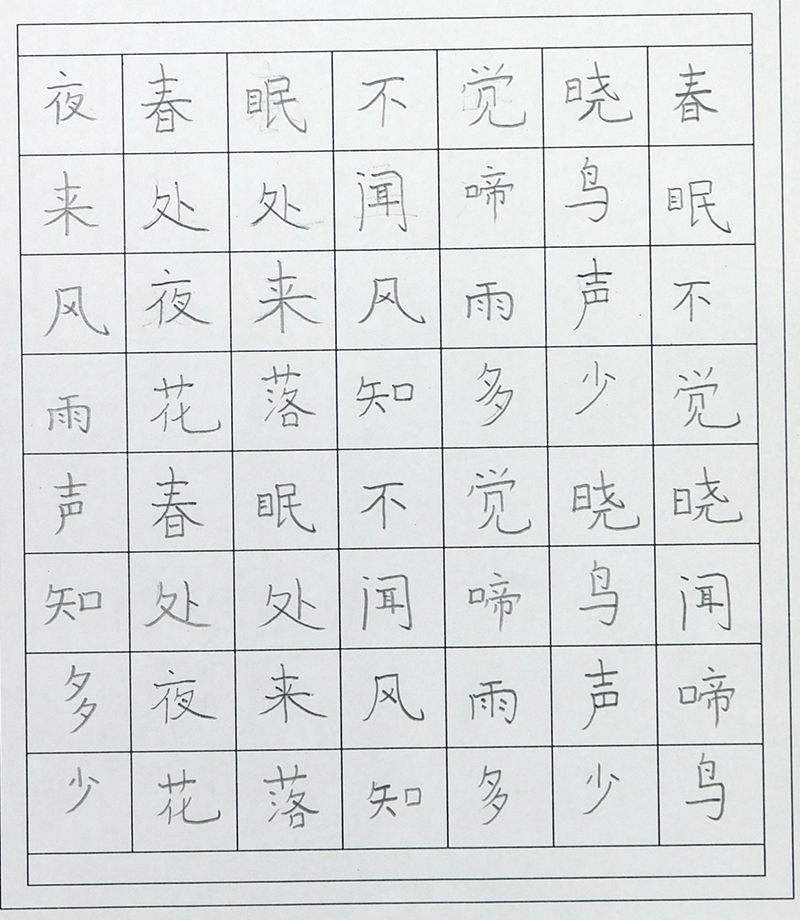 夜春眠不觉晓春
来处处闻啼鸟眠
风夜来风雨声不
雨花落知多少觉
声春眠不觉晓晓
知处处闻啼鸟闻
多夜来风雨声啼
少花落知多少鸟